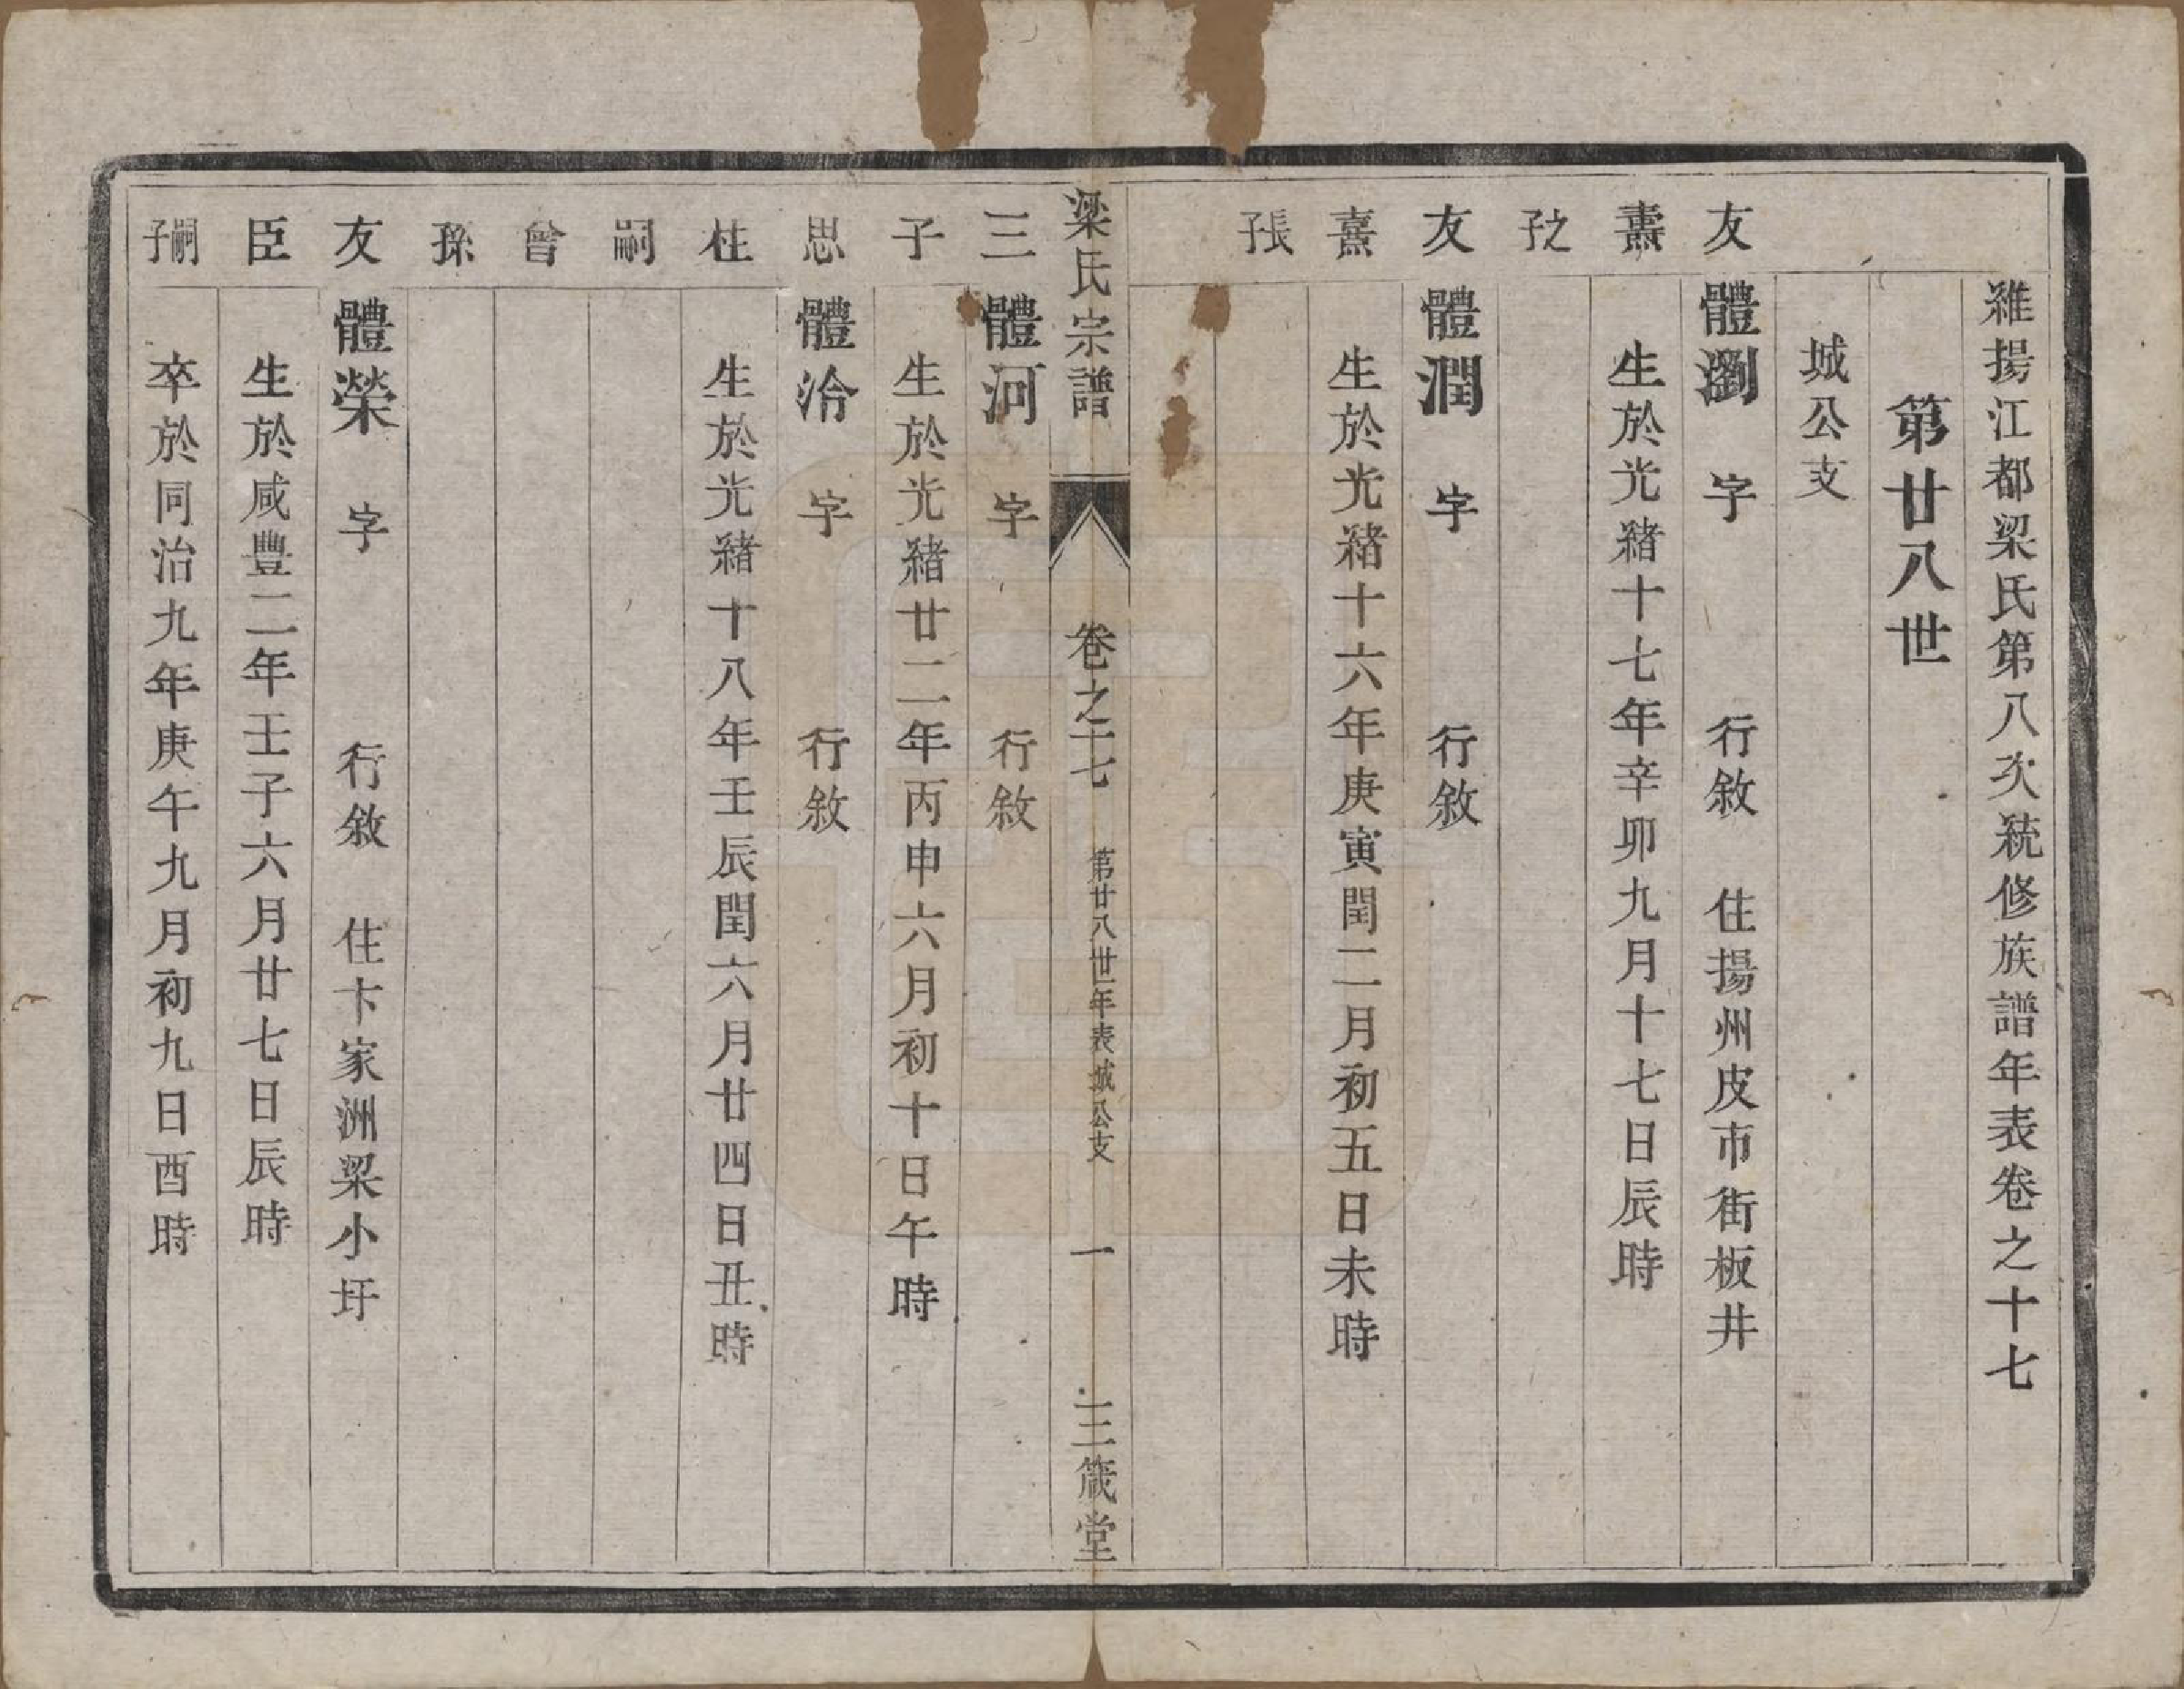 維揚江都梁氏第八次統修族譜年表卷之十七
第廿八世
城公支
友燾之子
體瀏　字　行敘　住揚州皮市街板井
生於光緒十七年辛卯九月十七日辰時
友熹長子
體潤　字　行敘
生於光緒十六年庚寅閏二月初五日未時
梁氏宗譜　卷之十七　第廿八世年表城公支　一　三箴堂
三子
體河　字　行敘
生於光緒廿二年丙申六月初十日午時
思柱嗣曾孫
體洽　字　行敘
生於光緒十八年壬辰閏六月廿四日丑時
友臣嗣子
體榮　字　行敘　住卞家洲梁小圩
生於咸豐二年壬子六月廿七日辰時
卒於同治九年庚午九月初九日酉時